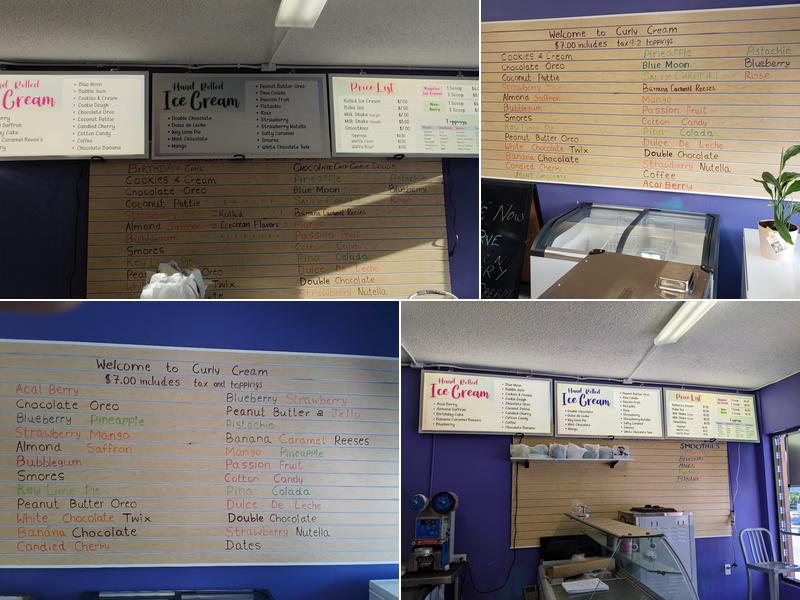 Hand Rolled
Ice Cream
Blue Moon
Bubble Gum
Cookies & Cream
Cookie Dough
Chocolate Oreo
Coconut Pattie
Candied Cherry
Cotton Candy
Coffee
Chocolate Banana
Hand Rolled
Ice Cream
Double Chocolate
Dulce de Leche
Key Lime Pie
Mint Chocolate
Mango
Peanut Butter Oreo
Pina Colada
Passion Fruit
Pistachio
Rose
Strawberry
Strawberry Nutella
Salty Caramel
Smores
White Chocolate Twix
Price List
Rolled Ice Cream $7.00
Boba Tea $7.00
Milk Shake $7.00
Milk Shake $5.00
Smoothies $7.00
Toppings
BIRTHDAY CAKE
Cookies & Cream
Chocolate Oreo
Coconut Pattie
Strawberry
Almond Saffron
Bubblegum
Smores
Key Lime Pie
Rolled
Icecream Flavors
CHOCOLATE CHIP COOKIE DOUGH
Pineapple Pistachio
Blue Moon Blueberry
SALTY CARAMEL Rose
Banana Caramel Reeses
Mango
Passion Fruit
Cotton Candy
Pina Colada
Dulce De Leche
Double Chocolate
Strawberry Nutella
Welcome to Curly Cream
$7.00 includes tax + 2 toppings
Cookies & Cream
Chocolate Oreo
Coconut Pattie
Strawberry
Almond Saffron
Bubblegum
Smores
Key Lime
Peanut Butter Oreo
White Chocolate Twix
Banana Chocolate
Candied Cherry
Mint Chocolate
Pineapple Pistachio
Blue Moon Blueberry
SALTY CARAMEL Rose
Banana Caramel Reeses
Mango
Passion Fruit
Cotton Candy
Pina Colada
Dulce De Leche
Double Chocolate
Strawberry Nutella
Coffee
Acai Berry
Now
Welcome to Curly Cream
$7.00 includes tax and toppings
Acai Berry
Chocolate Oreo
Blueberry Pineapple
Strawberry Mango
Almond Saffron
Bubblegum
Smores
Key Lime Pie
Peanut Butter Oreo
White Chocolate Twix
Banana Chocolate
Candied Cherry
Blueberry Strawberry
Peanut Butter & Jelly
Pistachio
Banana Caramel Reeses
Mango Pineapple
Passion Fruit
Cotton Candy
Pina Colada
Dulce De Leche
Double Chocolate
Strawberry Nutella
Dates
Hand Rolled
Ice Cream
Acai Berry
Almond Saffron
Birthday Cake
Banana Caramel Reese's
Blueberry
Blue Moon
Bubble Gum
Cookies & Cream
Cookie Dough
Chocolate Oreo
Coconut Pattie
Candied Cherry
Cotton Candy
Coffee
Chocolate Banana
Hand Rolled
Ice Cream
Double Chocolate
Dulce de Leche
Key Lime Pie
Mint Chocolate
Mango
Peanut Butter Oreo
Pina Colada
Passion Fruit
Pistachio
Rose
Strawberry
Strawberry Nutella
Salty Caramel
Smores
White Chocolate Twix
Price List
SMOOTHIES